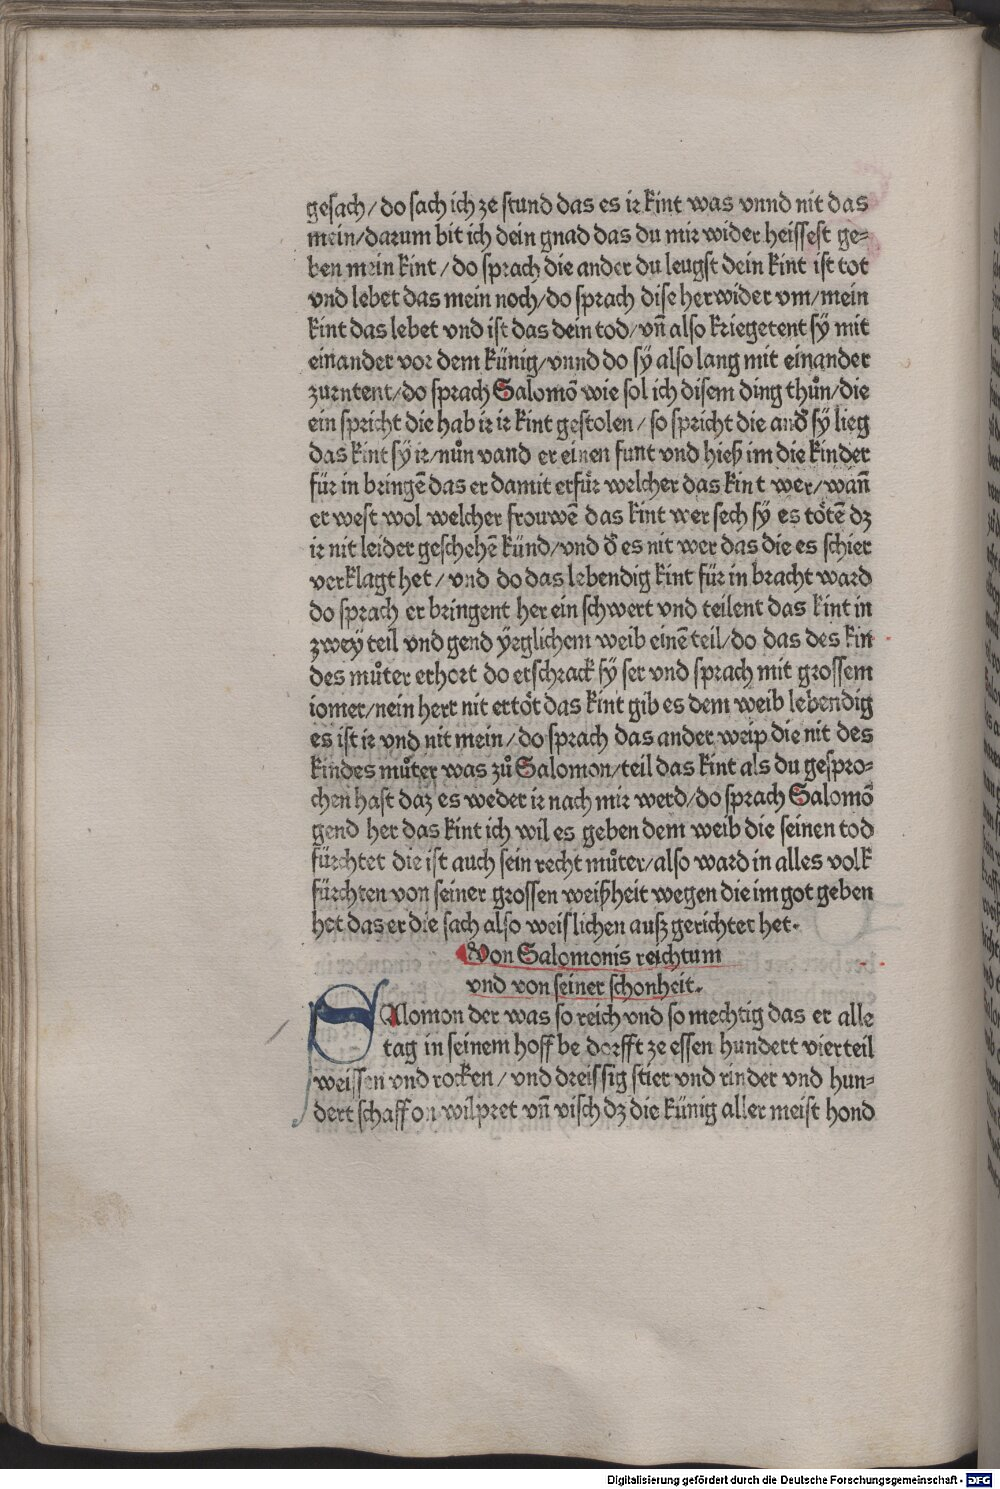 gesach/ do sach ich ze stund das es ir kint was vnnd nit das
mein/darum bit ich dein gnad das du mir wider heissest ge⸗
ben mein kint / do sprach die ander du leugst dein kint ist tot
vnd lebet das mein noch/do sprach dise herwider vm/mein
kint das lebet vnd ist das dein tod/vn̄ also kriegetent sÿ mit
einander vor dem künig/vnnd do sÿ also lang mit einander
zurntent/do sprach Salomō wie sol ich disem ding thůn/die
ein spricht die hab ir ir kint gestolen / so spricht die and̕ sÿ lieg
das kint sÿ ir/nůn vand er einen funt vnd hieß im die kinder
für in bringē das er damit erfür welcher das kint wer/wan̄
er west wol welcher frouwē das kint wer sech sÿ es tötē dz
ir nit leider geschehē künd/vnd d̕ es nit wer das die es schier
verklagt het / vnd do das lebendig kint für in bracht ward
do sprach er bringent her ein schwert vnd teilent das kint in
zwey teil vnd gend ÿeglichem weib einē teil/do das des kin
des můter erhort do erschrack sÿ ser vnd sprach mit grossem
iomer/nein herr nit ertöt das kint gib es dem weib lebendig
es ist ir vnd nit mein/do sprach das ander weip die nit des
kindes můter was zů Salomon/teil das kint als du gespro⸗
chen hast daz es weder ir nach mir werd/do sprach Salomō
gend her das kint ich wil es geben dem weib die seinen tod
fürchtet die ist auch sein recht můter/also ward in alles volk
fürchten von seiner grossen weißheit wegen die im got geben
het das er die sach also weislichen auß gerichtet het.
Von Salomonis reichtum
vnd von seiner schonheit.
SAlomon der was so reich vnd so mechtig das er alle
tag in seinem hoff be dorfft ze essen hundert vierteil
weissen vnd rocken / vnd dreissig stier vnd rinder vnd hun⸗
dert schaff on wilpret vn̄ visch dz die künig aller meist hond
Digitalisierung gefördert durch die Deutsche Forschungsgemeinschaft - DFG